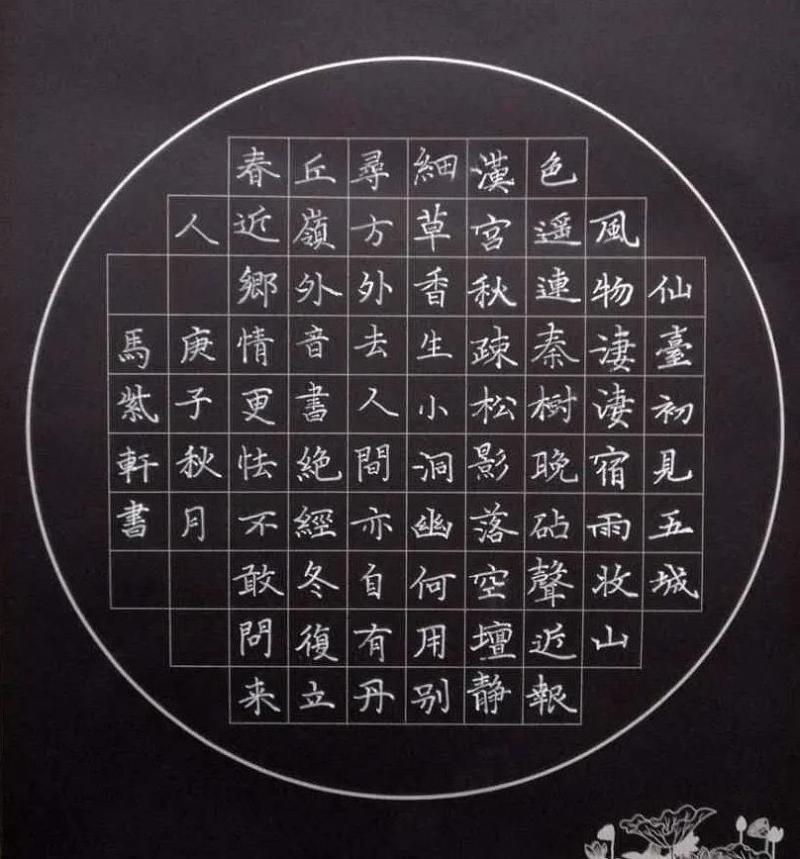 仙臺初見五城
風物淒淒宿雨收山
色遥連秦樹晚砧聲近報
漢宮秋疎松影落空壇静
細草香生小洞幽何用别
尋方外去人間亦自有丹
丘嶺外音書絶經冬復立
春近鄉情更怯不敢問来
人 庚子秋月
馬紫軒書